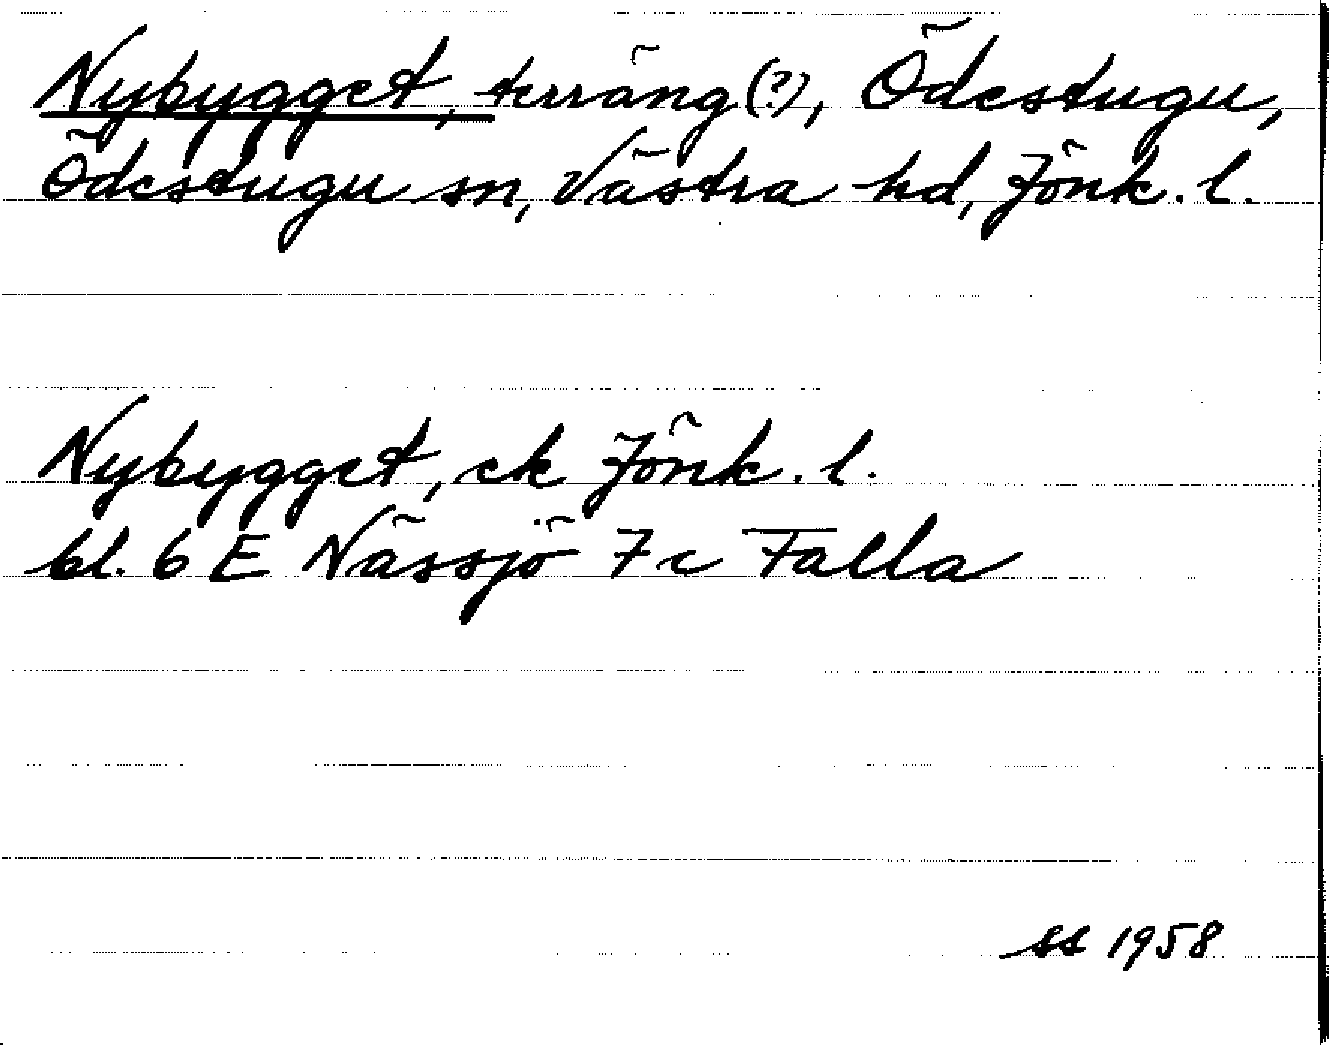 Nybygget, terräng (?), Ödestugu,
Ödestugu sn, Västra hd, Jönk. l.
Nybygget, ek Jönk. l.
bl. 6 E Nässjö 7 c Falla
ss 1958